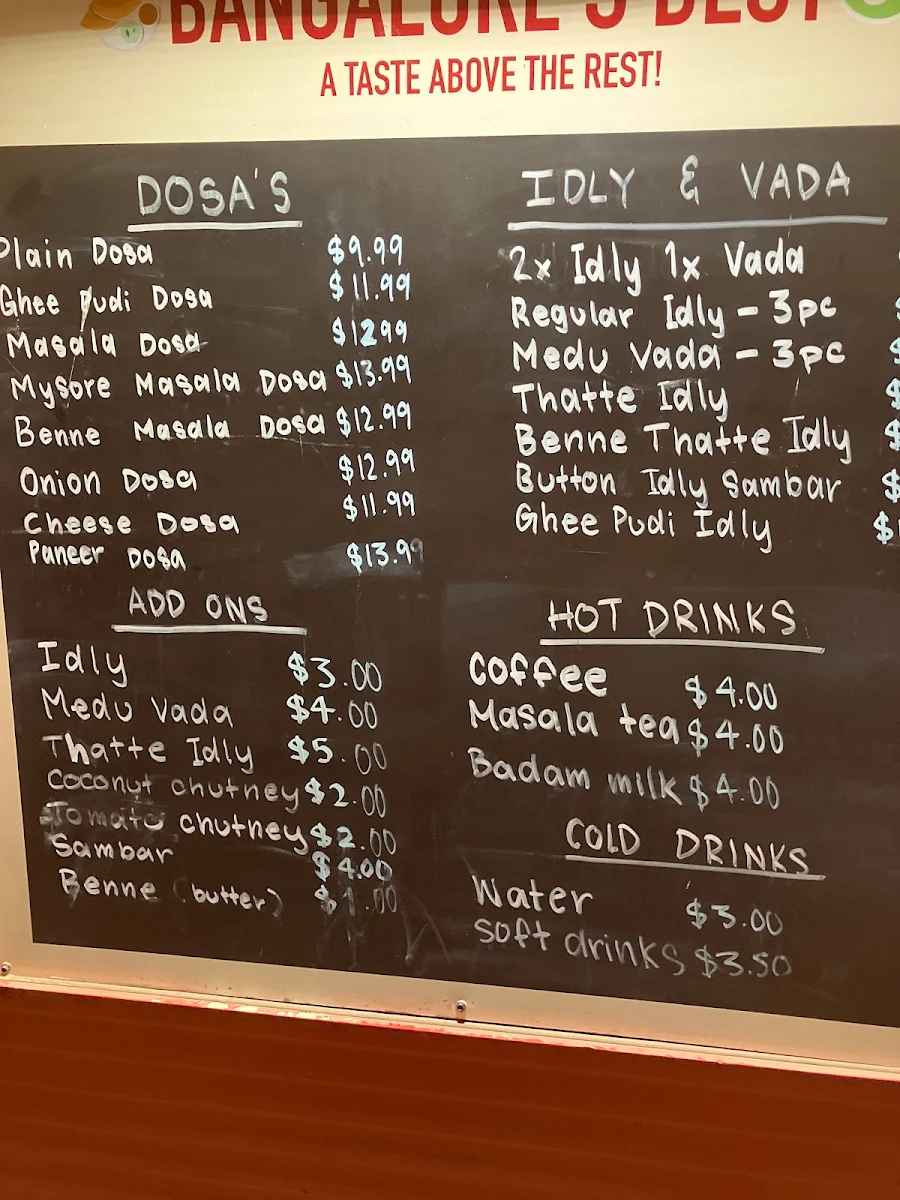 BANGALORE'S BEST
A TASTE ABOVE THE REST!
DOSA'S
Plain Dosa $9.99
Ghee Pudi Dosa $11.99
Masala Dosa $12.99
Mysore Masala Dosa $13.99
Benne Masala Dosa $12.99
Onion Dosa $12.99
Cheese Dosa $11.99
Paneer Dosa $13.99
ADD ONS
Idly $3.00
Medu Vada $4.00
Thatte Idly $5.00
Coconut chutney $2.00
Tomato chutney $2.00
Sambar $4.00
Benne (butter) $1.00
IDLY & VADA
2x Idly 1x Vada
Regular Idly - 3pc
Medu Vada - 3pc
Thatte Idly
Benne Thatte Idly
Button Idly Sambar $
Ghee Pudi Idly $
HOT DRINKS
Coffee $4.00
Masala tea $4.00
Badam milk $4.00
COLD DRINKS
Water $3.00
Soft drinks $3.50